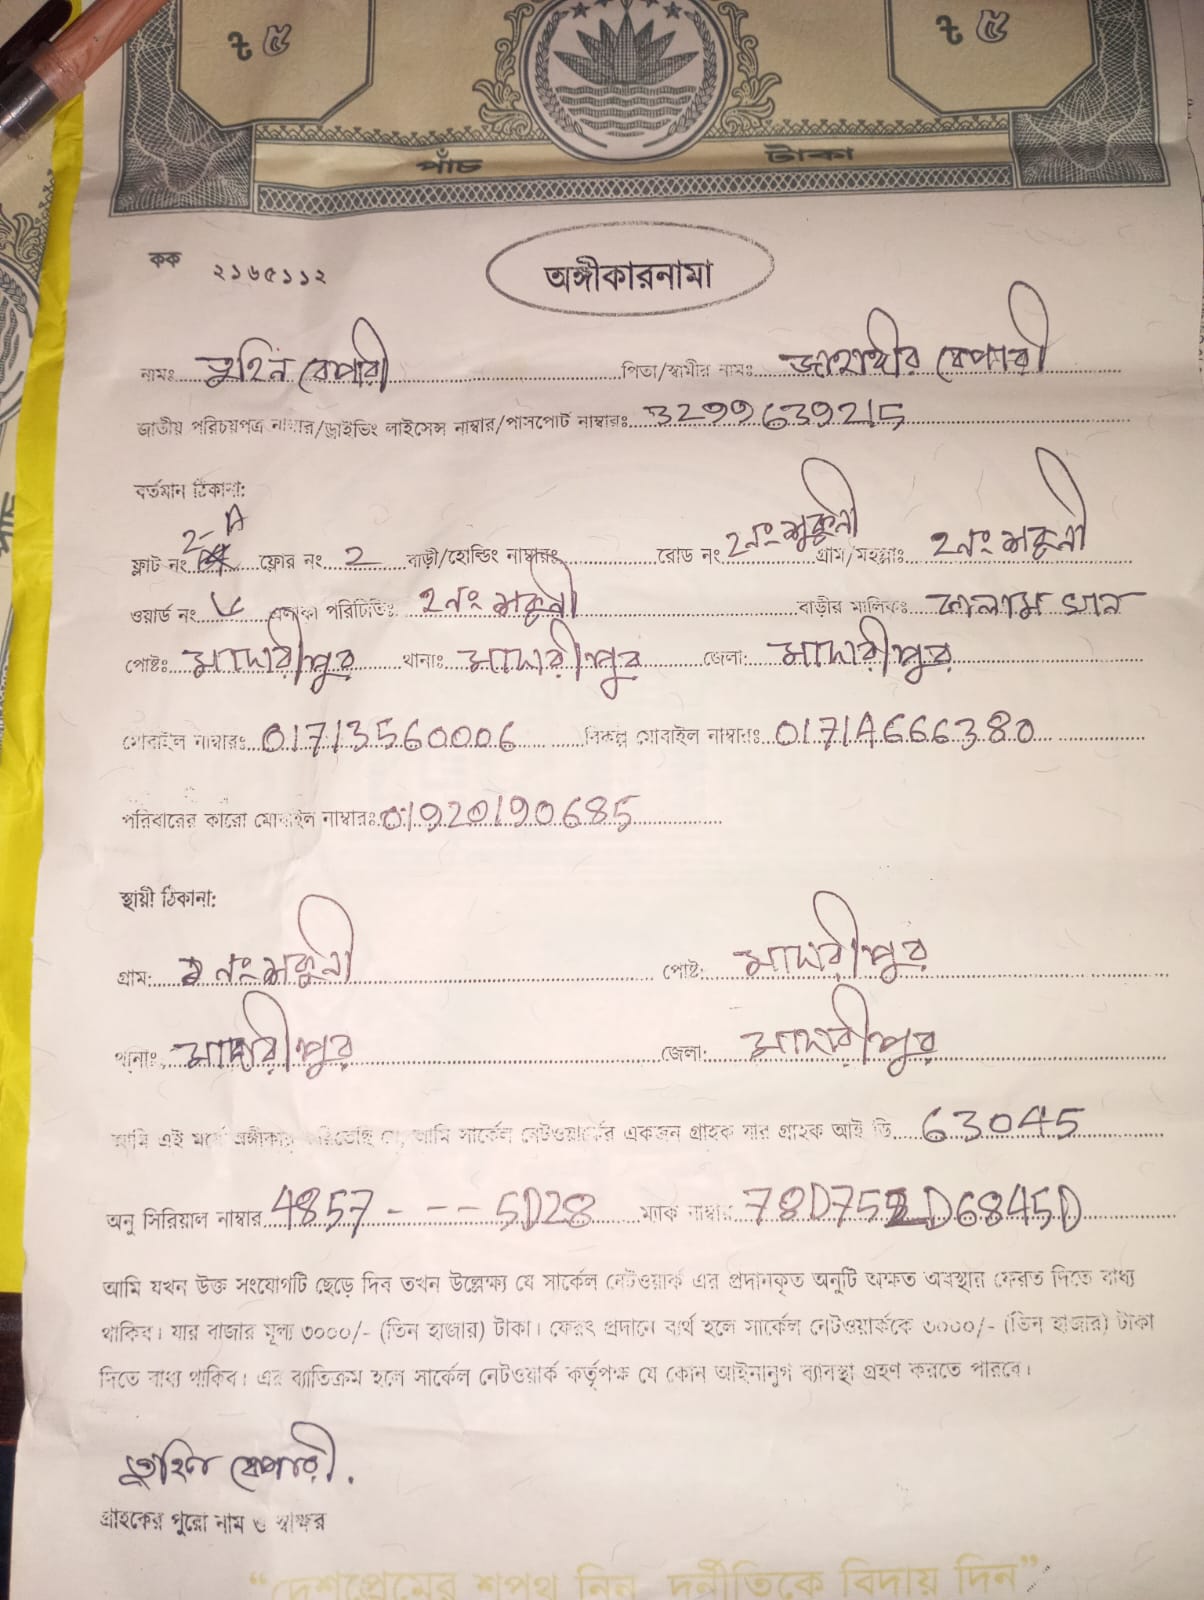 ৳ ৫ ৳ ৫
পাঁচ টাকা
কক ২১৬৫১১২
অঙ্গীকারনামা
নামঃ তুহিন বেপারী পিতা/স্বামীর নামঃ জাহাঙ্গীর বেপারী
জাতীয় পরিচয়পত্র নাম্বার/ড্রাইভিং লাইসেন্স নাম্বার/পাসপোর্ট নাম্বারঃ 3299639215
বর্তমান ঠিকানা:
ফ্লাট নং 2-A ফ্লোর নং 2 বাড়ী/হোল্ডিং নাম্বারঃ রোড নং 2নং শকুনী গ্রাম/মহল্লাঃ ২নং শকুনী
ওয়ার্ড নং এলাকা পরিচিতিঃ ২নং শকুনী বাড়ীর মালিকঃ কালাম খান
পোষ্টঃ মাদারীপুর থানাঃ মাদারীপুর জেলা: মাদারীপুর
মোবাইল নাম্বারঃ 01713560006 বিকল্প মোবাইল নাম্বারঃ 01714666380
পরিবারের কারো মোবাইল নাম্বারঃ 01920190685
স্থায়ী ঠিকানা:
গ্রাম: ২নং শকুনী পোষ্ট: মাদারীপুর
থানাঃ মাদারীপুর জেলা: মাদারীপুর
আমি এই মর্মে অঙ্গীকার করিতেছি যে, আমি সার্কেল নেটওয়ার্কের একজন গ্রাহক যার গ্রাহক আই ডি 63045
অনু সিরিয়াল নাম্বার 4857 - - - 5D28 ম্যাক নাম্বার 78D752D6845D
আমি যখন উক্ত সংযোগটি ছেড়ে দিব তখন উল্লেক্ষ্য যে সার্কেল নেটওয়ার্ক এর প্রদানকৃত অনুটি অক্ষত অবস্থায় ফেরত দিতে বাধ্য
থাকিব। যার বাজার মূল্য ৩০০০/- (তিন হাজার) টাকা। ফেরৎ প্রদানে ব্যর্থ হলে সার্কেল নেটওয়ার্ককে ৩০০০/- (তিন হাজার) টাকা
দিতে বাধ্য থাকিব। এর ব্যাতিক্রম হলে সার্কেল নেটওয়ার্ক কর্তৃপক্ষ যে কোন আইনানুগ ব্যাবস্থা গ্রহণ করতে পারবে।
তুহিন বেপারী.
গ্রাহকের পুরো নাম ও স্বাক্ষর
“দেশপ্রেমের শপথ নিন, দুর্নীতিকে বিদায় দিন”